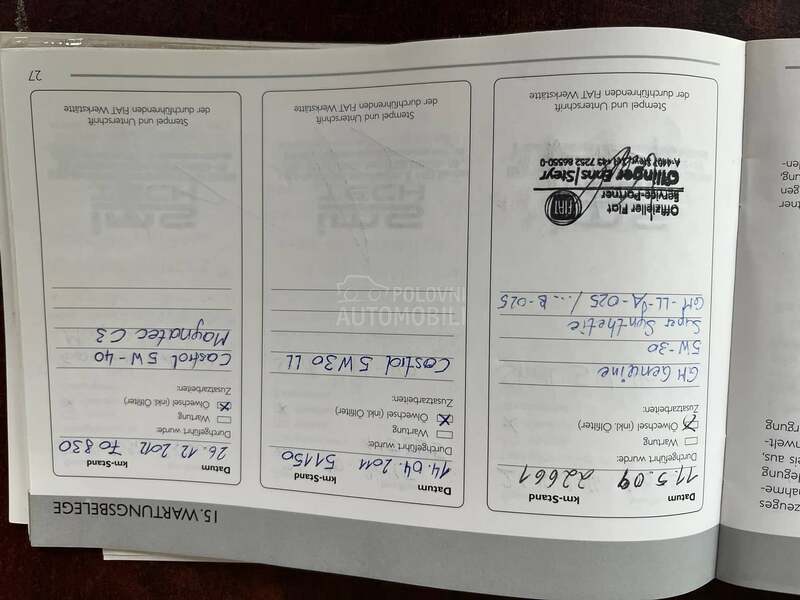 15. WARTUNGSBELEGE
Datum km-Stand
11.5.09 22661
Durchgeführt wurde:
Wartung
Ölwechsel (inkl. Ölfilter)
Zusatzarbeiten:
GM Genuine
5W-30
Super Synthetic
GM-LL-A-025 / ... B-025
Offizieller Fiat
Service-Partner
FIAT
Öllinger Enns/Steyr
Stempel und Unterschrift
der durchführenden FIAT Werkstätte
Datum km-Stand
14.04.2011 51150
Durchgeführt wurde:
Wartung
Ölwechsel (inkl. Ölfilter)
Zusatzarbeiten:
Castrol 5W30 LL
Stempel und Unterschrift
der durchführenden FIAT Werkstätte
Datum km-Stand
26.12.2012 70830
Durchgeführt wurde:
Wartung
Ölwechsel (inkl. Ölfilter)
Zusatzarbeiten:
Castrol 5W-40
Magnatec C3
Stempel und Unterschrift
der durchführenden FIAT Werkstätte
27
POLOVNI
AUTOMOBILI